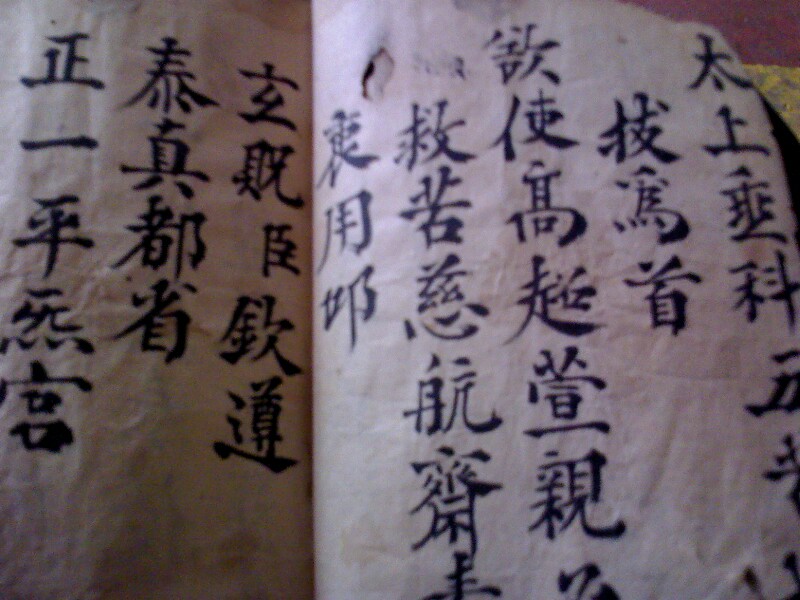 太上垂科
拔為首
欲使高超萱親
救苦慈航齋
衷用
玄貺臣欽遵
泰真都省
正一平炁宮